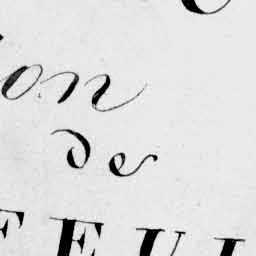 on
de
FEUI